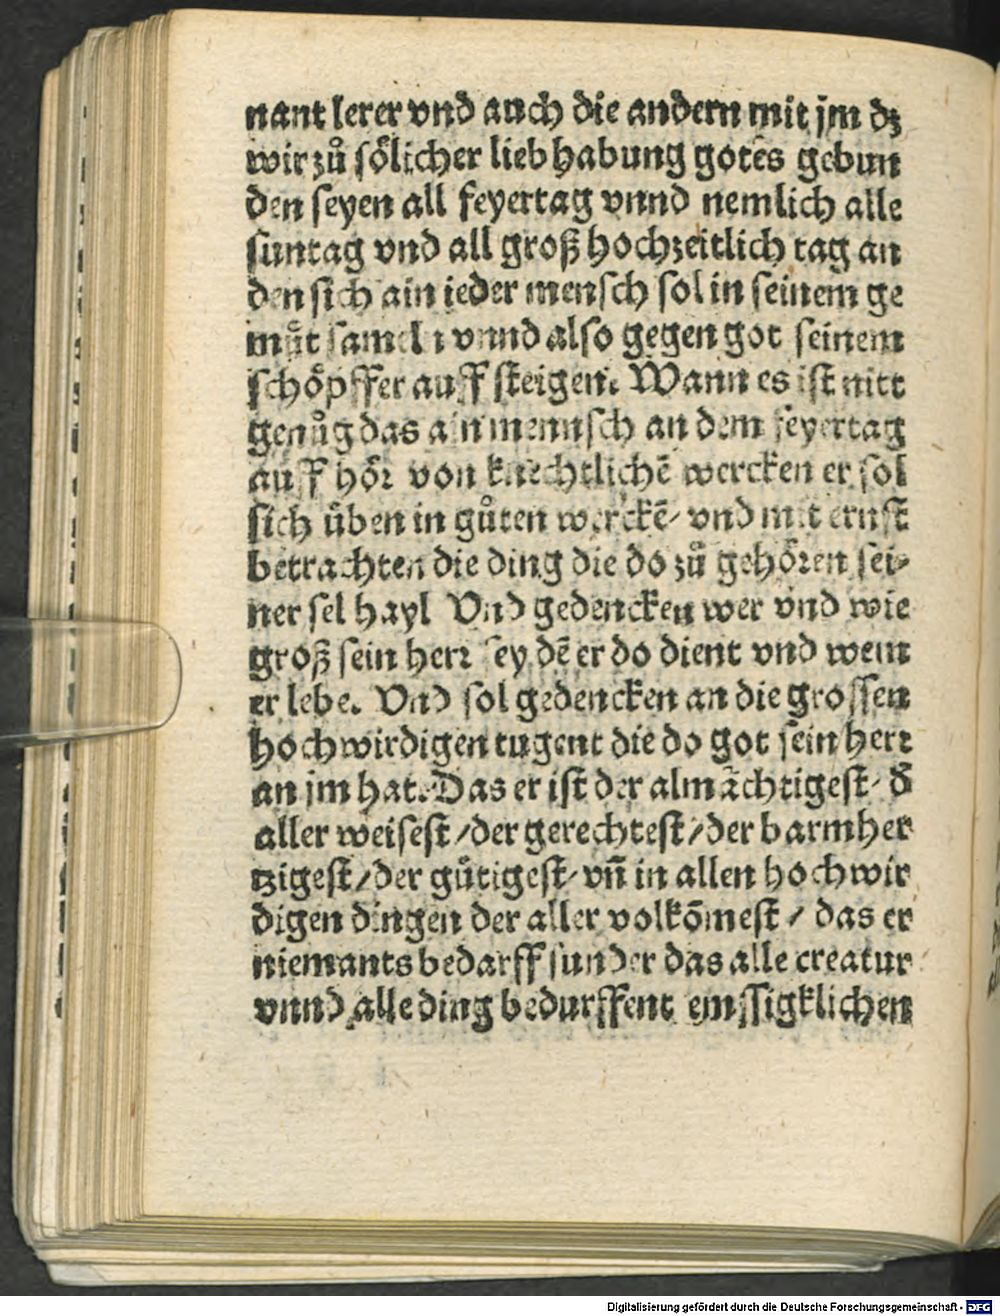 nant lerer vnd auch die andern mit jm dz
wir zů sölicher lieb habung gotes gebun
den seyen all feyertag vnnd nemlich alle
suntag vnd all groß hochzeitlich tag an
den sich ain ieder mensch sol in seinem ge
můt sameln vnnd also gegen got seinem
schöpffer auff steigen. Wann es ist nitt
genůg das ain mennsch an dem feyertag
auff hör von knechtlichē wercken er sol
sich üben in gůten werckē/ vnd mit ernst
betrachten die ding die do zů gehören sei⸗
ner sel hayl Vnd gedencken wer vnd wie
groß sein herr sey dē er do dient vnd wem
er lebe. Vnd sol gedencken an die grossen
hochwirdigen tugent die do got sein herr
an jm hat. Das er ist der almächtigest/ d̄
aller weisest/der gerechtest/der barmher
tzigest/der gütigest/ vñ in allen hochwir
digen dingen der aller volkōmest/ das er
niemants bedarff sunder das alle creatur
vnnd alle ding bedurffent emssigklichen
Digitalisierung gefördert durch die Deutsche Forschungsgemeinschaft - DFG